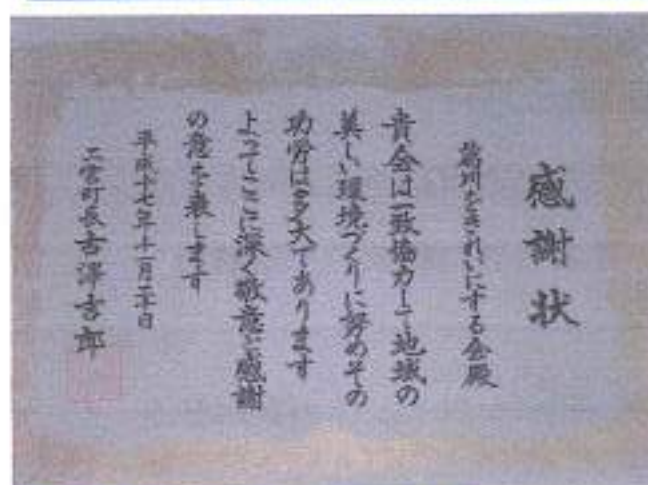 感謝状
川をきれいにする会殿
貴会は一致協力して地域の
美しい環境づくりに努めその
功労は多大であります
よってここに深く敬意と感謝
の意を表します
平成十七年十一月 日
二宮町長 古澤吉郎